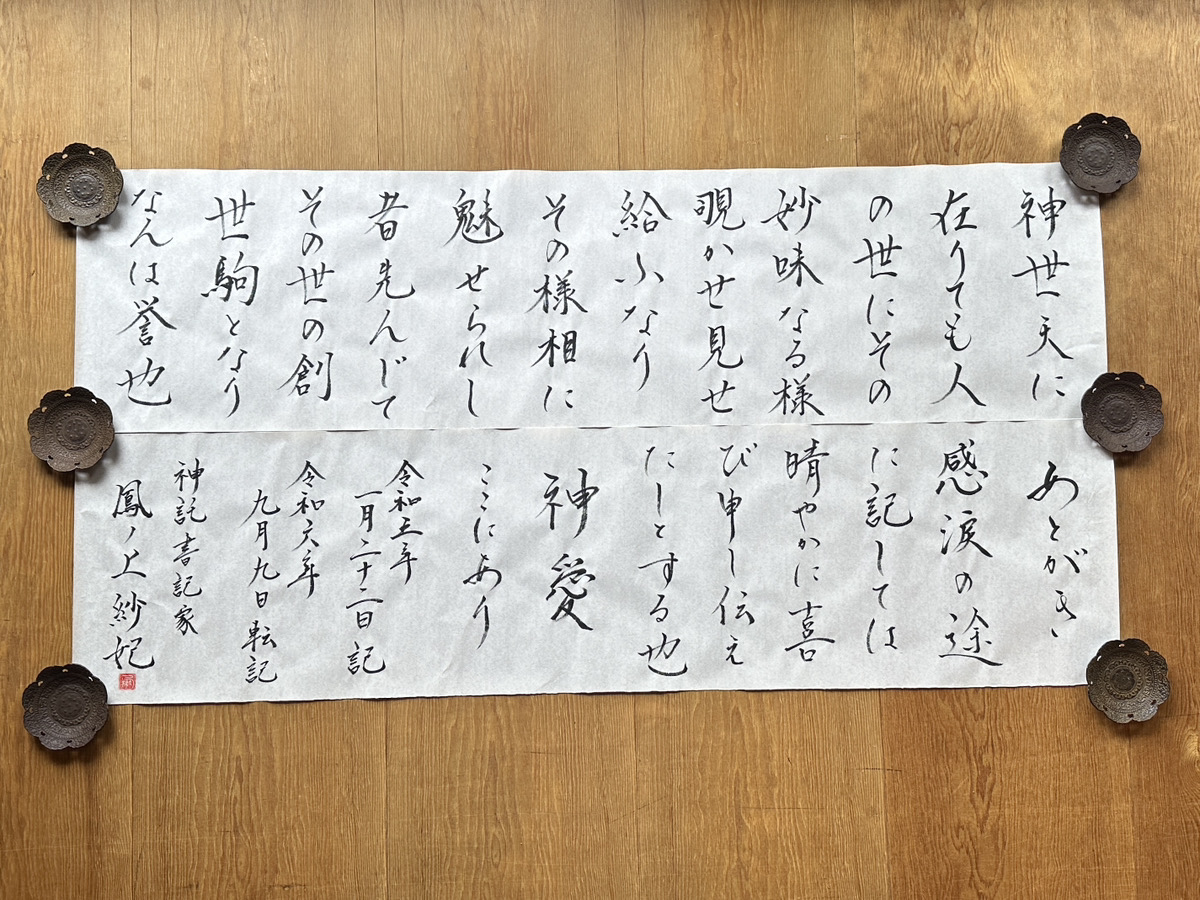 神世天に
在りても人
の世にその
妙味なる様
覗かせ見せ
給ふなり
その様相に
魅せられし
者先んじて
その世の創
世駒となり
なんは誉也
あとがき
感涙の途
に記しては
晴やかに喜
び申し伝え
たしとする也
神愛
ここにあり
令和三年
一月二十二日記
令和六年
九月九日転記
神託書記家
鳳ノ上紗妃